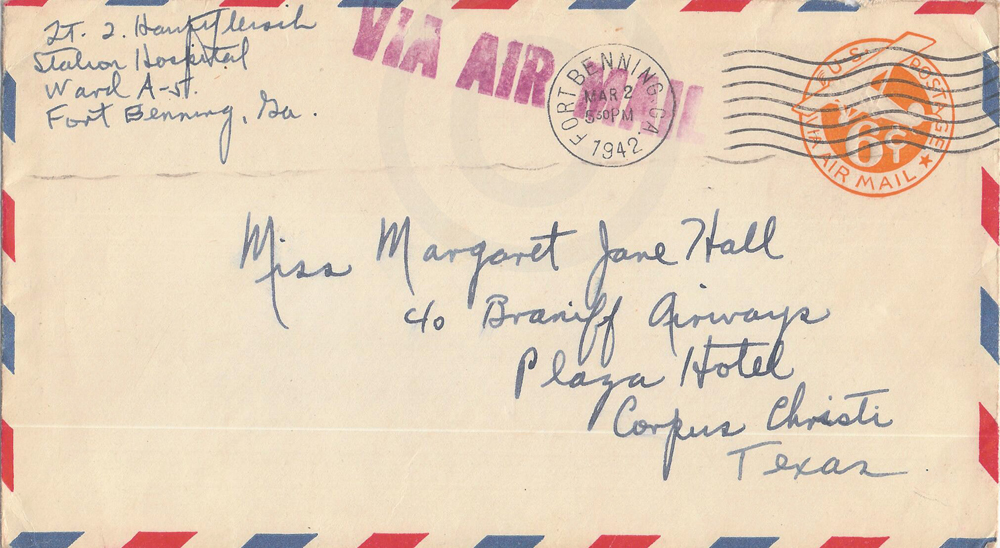 Lt. J.
Station Hospital
Ward A-51.
Fort Benning, Ga.
VIA AIR MAIL
FORT BENNING GA.
MAR 2
5 30 PM
1942
U.S. POSTAGE
6¢
VIA AIR MAIL
Miss Margaret Jane Hall
c/o Braniff Airways
Plaza Hotel
Corpus Christi
Texas